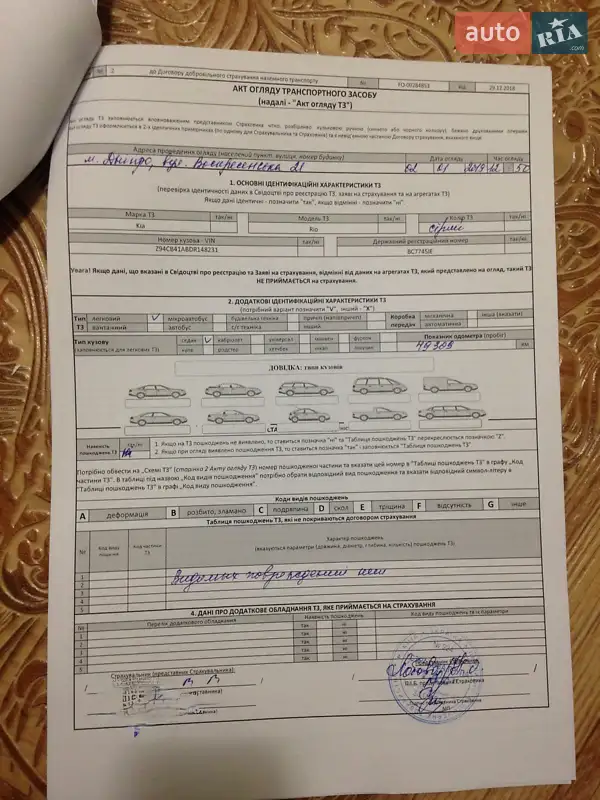 auto RIA.com
№ 2 до Договору добровільного страхування наземного транспорту від 29.12.2018
АКТ ОГЛЯДУ ТРАНСПОРТНОГО ЗАСОБУ
(надалі - "Акт огляду ТЗ")
Адреса проведення огляду (населений пункт, вулиця, номер будинку) Дата огляду Час огляду
м. Дніпро, вул. Воскресенська 21 02 01 2019
1. ОСНОВНІ ІДЕНТИФІКАЦІЙНІ ХАРАКТЕРИСТИКИ ТЗ
(перевірка ідентичності даних в Свідоцтві про реєстрацію ТЗ, заяві на страхування та на агрегатах ТЗ)
Якщо дані ідентичні - позначити "так", якщо відмінні - позначити "ні"
Марка ТЗ так/ні Модель ТЗ так/ні Колір ТЗ так/ні
Kia Rio сірий
Номер кузова - VIN так/ні Державний реєстраційний номер так/ні
Z94CB41ABDR148231 BC7745IE
Увага! Якщо дані, що вказані в Свідоцтві про реєстрацію та Заяві на страхування, відмінні від даних на агрегатах ТЗ, який представлено на огляд, такий ТЗ
НЕ ПРИЙМАЄТЬСЯ на страхування.
2. ДОДАТКОВІ ІДЕНТИФІКАЦІЙНІ ХАРАКТЕРИСТИКИ ТЗ
(потрібний варіант позначити "V", інший - "X")
Тип легковий V мікроавтобус будівельна техніка причіп (напівпричіп) Коробка механічна інша (вказати)
ТЗ вантажний автобус с/г техніка інший передач автоматична
Тип кузову седан V кабріолет універсал мінівен фургон Показник одометра (пробіг)
(заповнюється для легкових ТЗ) купе родстер хетчбек пікап лімузин 49305 км
ДОВІДКА: типи кузовів
Наявність так/ні 1. Якщо на ТЗ пошкоджень не виявлено, то ставиться позначка "ні" та "Таблиця пошкоджень ТЗ" перекреслюється позначкою "Z".
пошкоджень ТЗ 2. Якщо при огляді виявлено пошкодження ТЗ, то ставиться позначка "так" - і заповнюється "Таблиця пошкоджень ТЗ"
Потрібно обвести на „Схемі ТЗ" (сторінка 2 Акту огляду ТЗ) номер пошкодженої частини та вказати цей номер в "Таблиці пошкоджень ТЗ" в графу „Код
частини ТЗ". В таблиці під назвою „Код видів пошкодження" потрібно обрати відповідний вид пошкодження та вказати відповідний символ-літеру в
"Таблиці пошкоджень ТЗ" в графу „Код виду пошкодження".
Коди видів пошкоджень
A деформація B розбито, зламано C подряпина D скол E тріщина F відсутність G інше
Таблиця пошкоджень ТЗ, які не покриваються договором страхування
№ Код виду пошкодження Код частини ТЗ Характер пошкоджень
(вказуються параметри (довжина, діаметр, глибина, кількість) пошкоджень ТЗ)
1
2 Видимых повреждений нет
3
4
5
4. ДАНІ ПРО ДОДАТКОВЕ ОБЛАДНАННЯ ТЗ, ЯКЕ ПРИЙМАЄТЬСЯ НА СТРАХУВАННЯ
№ Перелік додаткового обладнання Наявність пошкоджень Код виду пошкоджень та їх параметри
1 так ні
2 так ні
3 так ні
4 так ні
5 так ні
Страхувальник (представник Страхувальника)